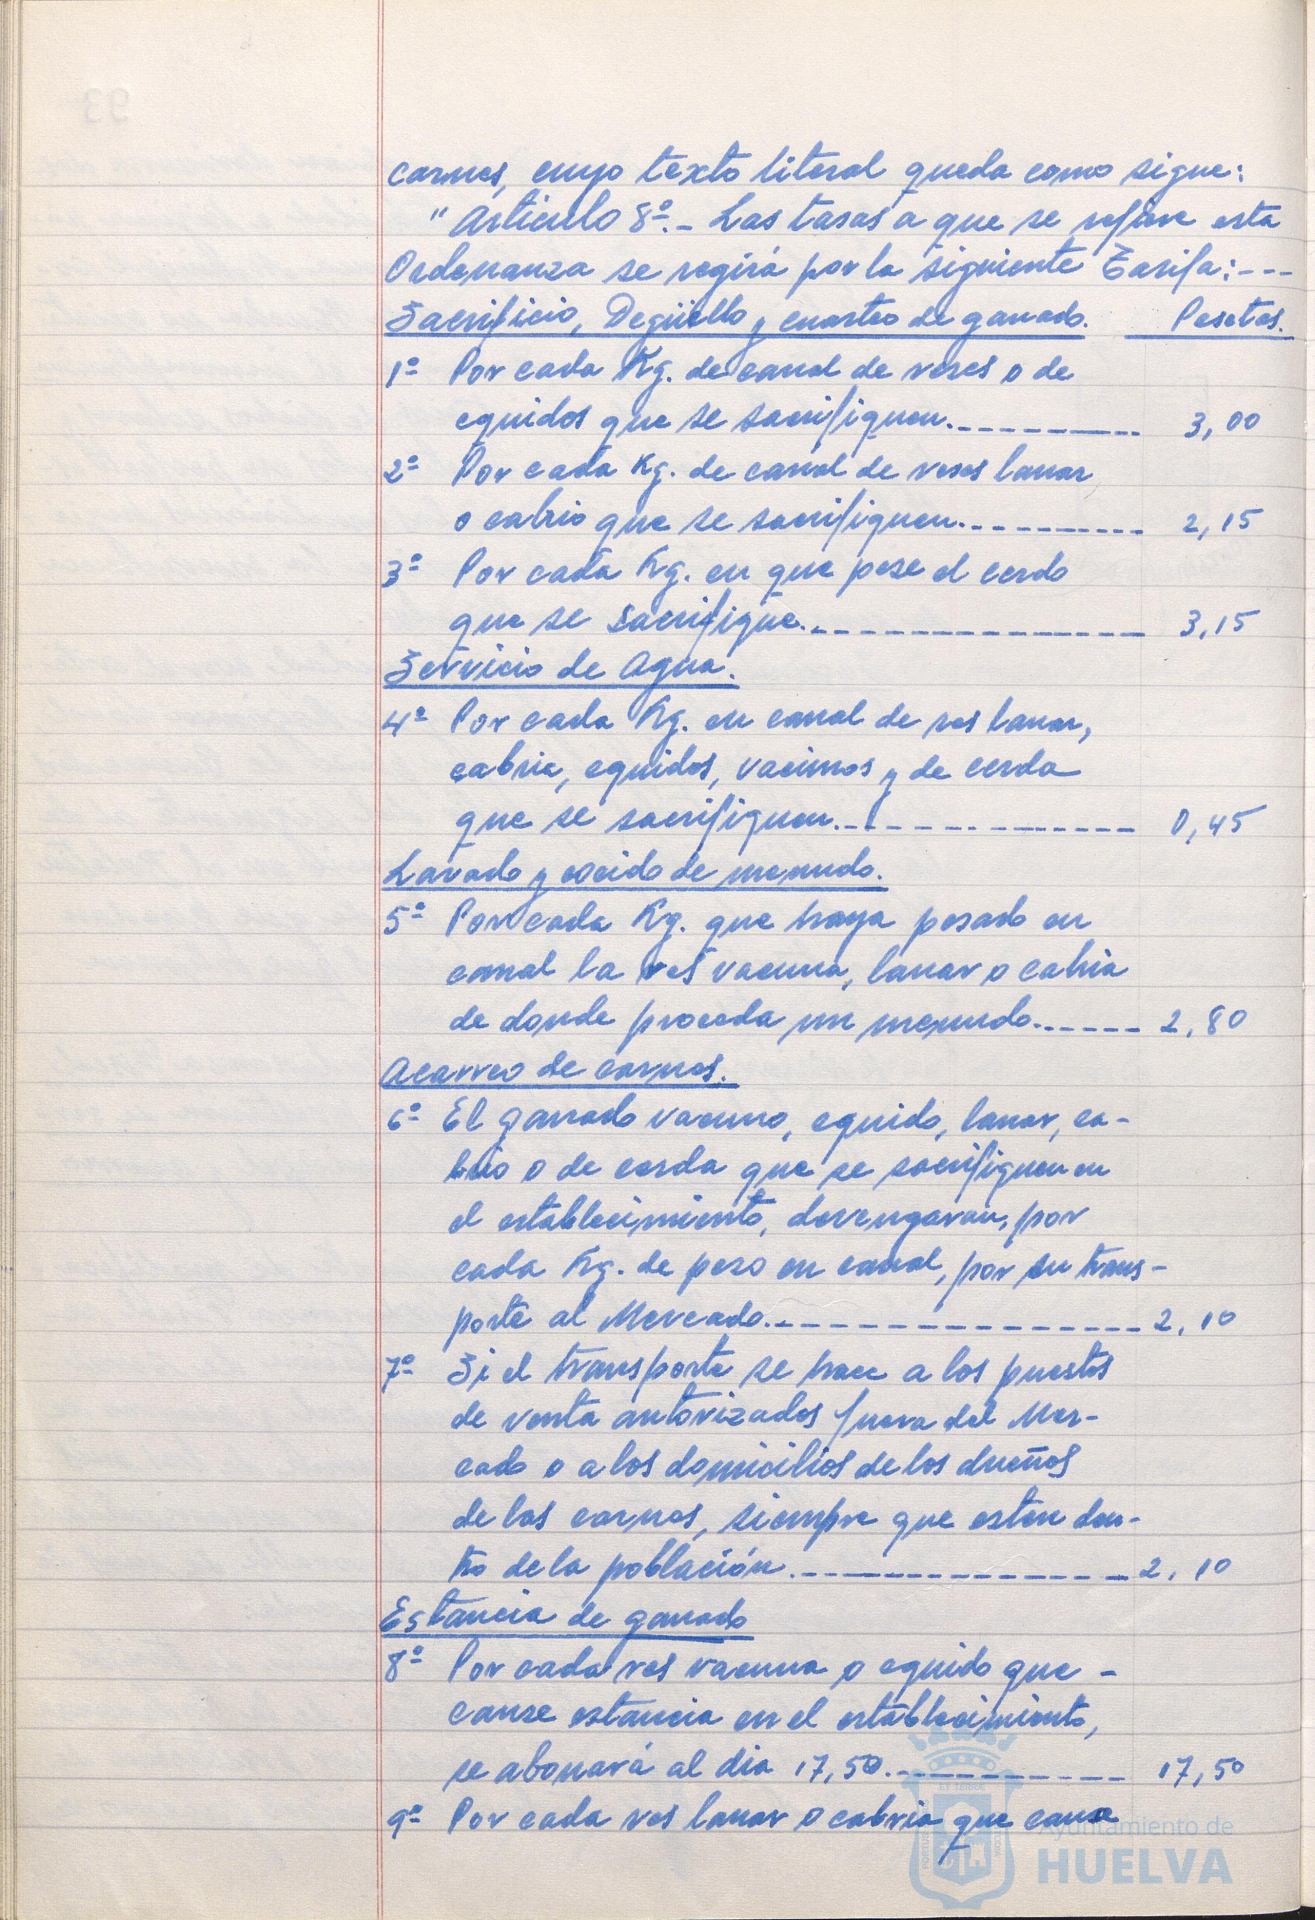 carnes, cuyo texto literal queda como sigue:
"Artículo 8º.- Las tasas a que se refiere esta
Ordenanza se regirá por la siguiente Tarifa:---
Sacrificio, Degüello y cuarteo de ganado. Pesetas.
1º Por cada Kg. de canal de reses o de
equidos que se sacrifiquen.---------- 3,00
2º Por cada Kg. de canal de reses lanar
o cabrio que se sacrifiquen.---------- 2,15
3º Por cada Kg. en que pese el cerdo
que se sacrifique.--------------- 3,15
Servicio de Agua.
4º Por cada Kg. en canal de res lanar,
cabria, equidos, vacunos y de cerda
que se sacrifiquen.-------------- 0,45
Lavado y cocido de menudo.
5º Por cada Kg. que haya pesado en
canal la res vacuna, lanar o cabria
de donde proceda un menudo.----- 2,80
Acarreo de carnes.
6º El ganado vacuno, equido, lanar, ca-
brio o de cerda que se sacrifiquen en
el establecimiento, devengaran, por
cada Kg. de peso en canal, por su trans-
porte al Mercado.----------------- 2,10
7º Si el transporte se hace a los puestos
de venta autorizados fuera del Mer-
cado o a los domicilios de los dueños
de las carnes, siempre que esten den-
tro de la población.--------------- 2,10
Estancia de ganado
8º Por cada res vacuna o equido que -
cause estancia en el establecimiento,
se abonará al dia 17,50.----------- 17,50
9º Por cada res lanar o cabria que cause
Ayuntamiento de
HUELVA